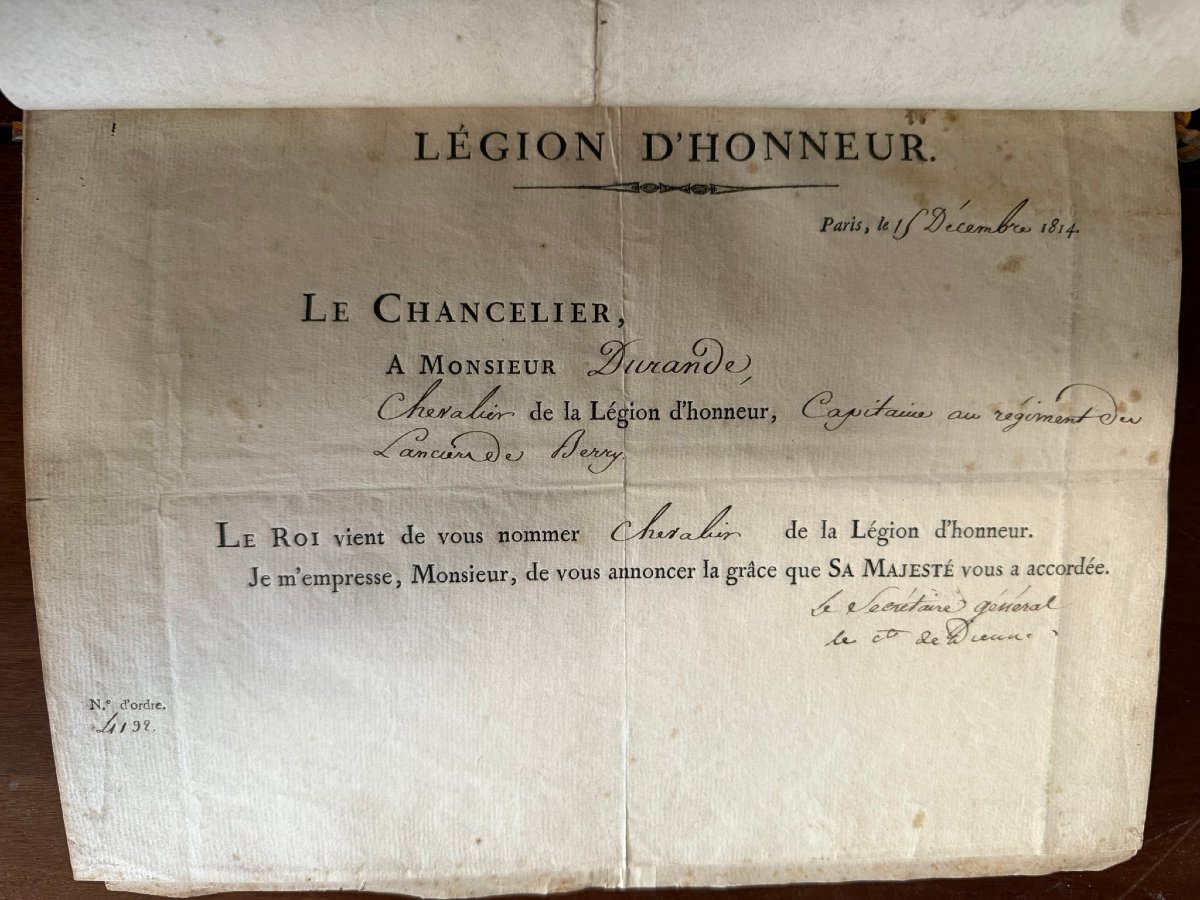 LÉGION D'HONNEUR.
Paris, le 15 Décembre 1814.
LE CHANCELIER,
A MONSIEUR Durande,
Chevalier de la Légion d'honneur, Capitaine au régiment des
Lanciers de Berry
LE ROI vient de vous nommer Chevalier de la Légion d'honneur.
Je m'empresse, Monsieur, de vous annoncer la grâce que SA MAJESTÉ vous a accordée.
Le Secrétaire général
le cte de
N.º d'ordre.
4192.